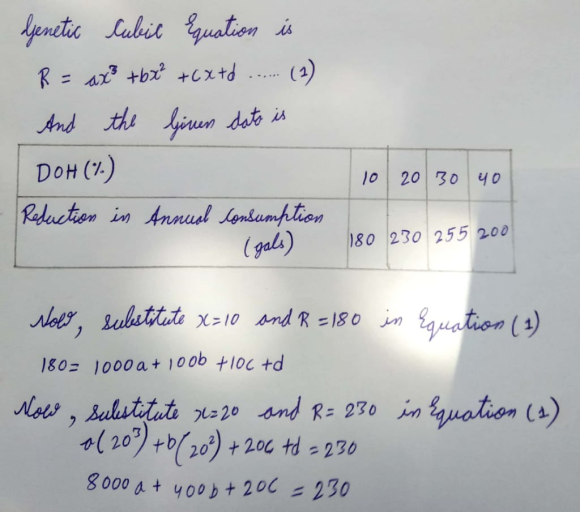 Genetic Cubic Equation is
R = ax³ + bx² + cx + d ...... (1)
And the given data is
DOH (%) 10 20 30 40
Reduction in Annual Consumption (gals) 180 230 255 200
Now, substitute x=10 and R = 180 in Equation (1)
180 = 1000a + 100b + 10c + d
Now, substitute x=20 and R = 230 in Equation (1)
a(20³) + b(20²) + 20c + d = 230
8000a + 400b + 20c = 230